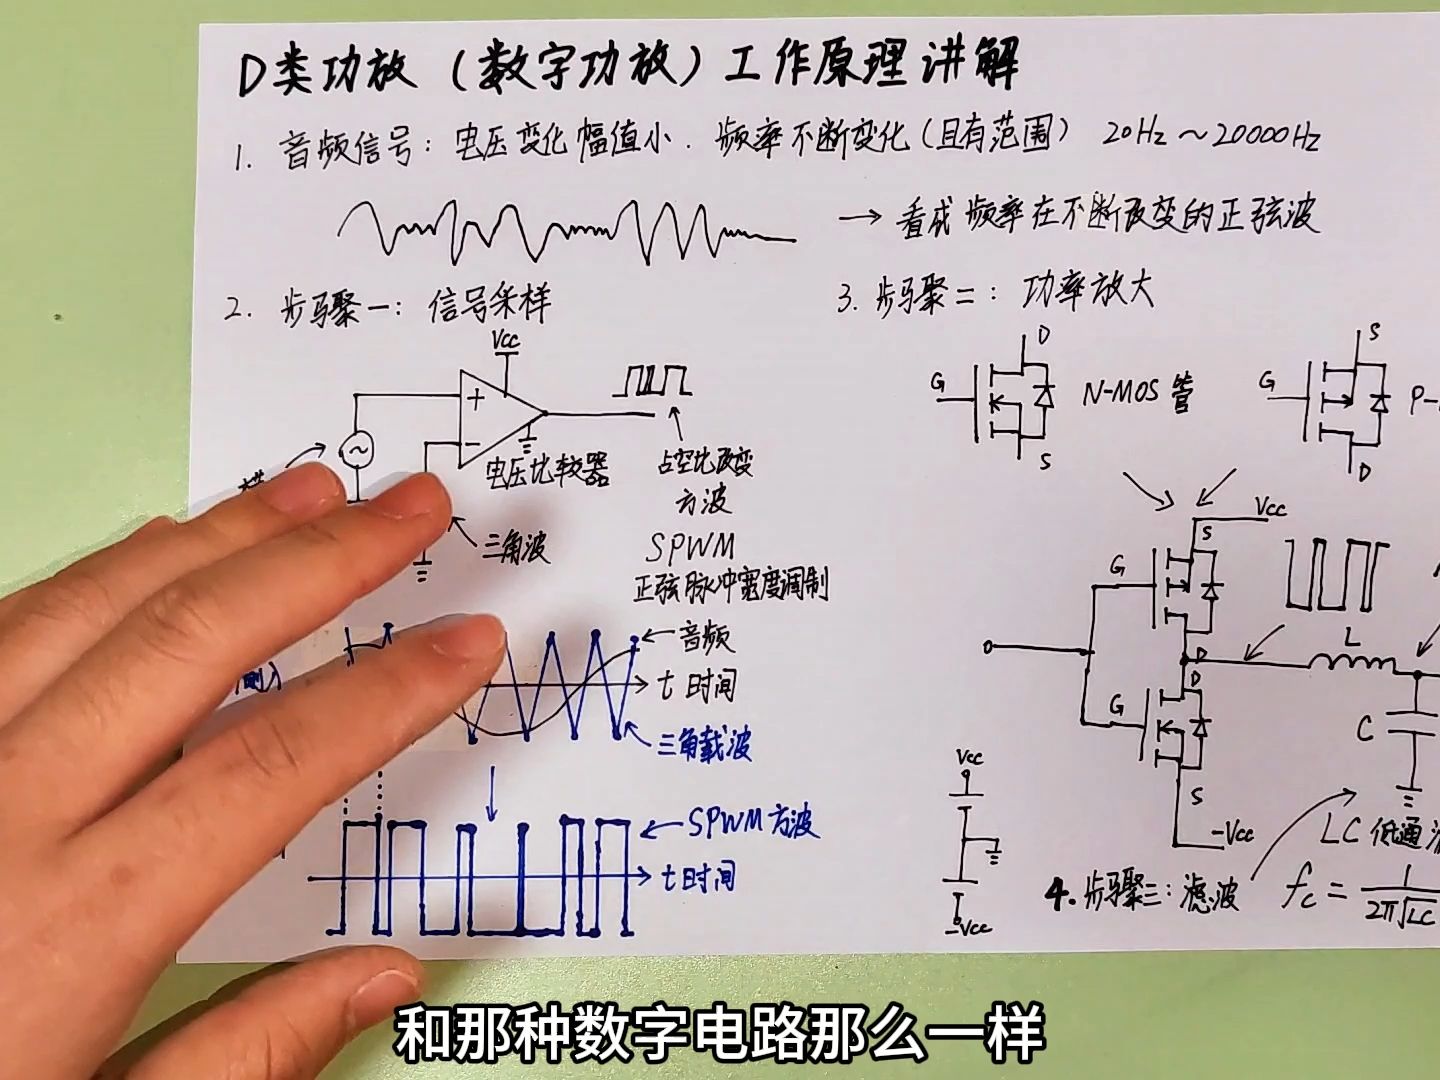 D类功放（数字功放）工作原理讲解
1. 音频信号：电压变化幅值小．频率不断变化（且有范围） 20Hz～20000Hz
→ 看成频率在不断改变的正弦波
2. 步骤一：信号采样
Vcc
+
−
~
电压比较器
三角波
占空比改变
方波
SPWM
正弦脉冲宽度调制
音频
t 时间
三角载波
SPWM方波
t时间
3. 步骤二：功率放大
G
D
S
N-MOS管
G
S
D
P-
Vcc
S
G
D
D
G
S
-Vcc
L
C
Vcc
-Vcc
LC 低通
4. 步骤三：滤波
fc = 1/2π√LC
和那种数字电路那么一样